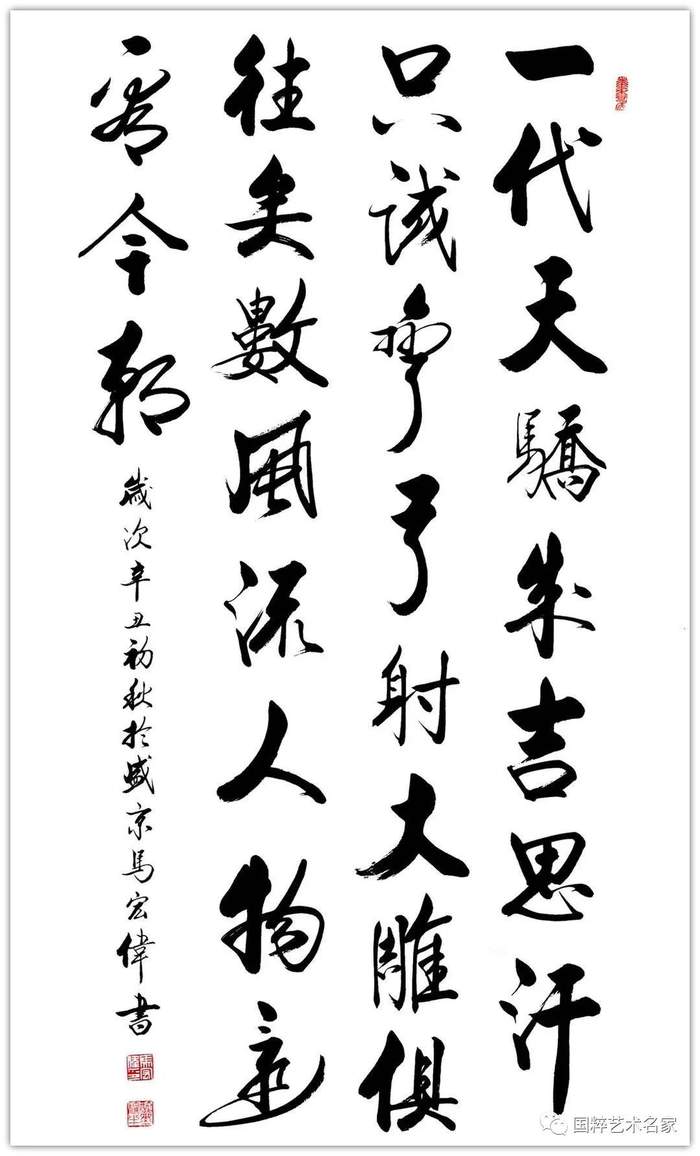 一代天驕成吉思汗
只識彎弓射大雕俱
往矣數風流人物還
看今朝
歲次辛丑初秋於盛京馬宏偉書
国粹艺术名家